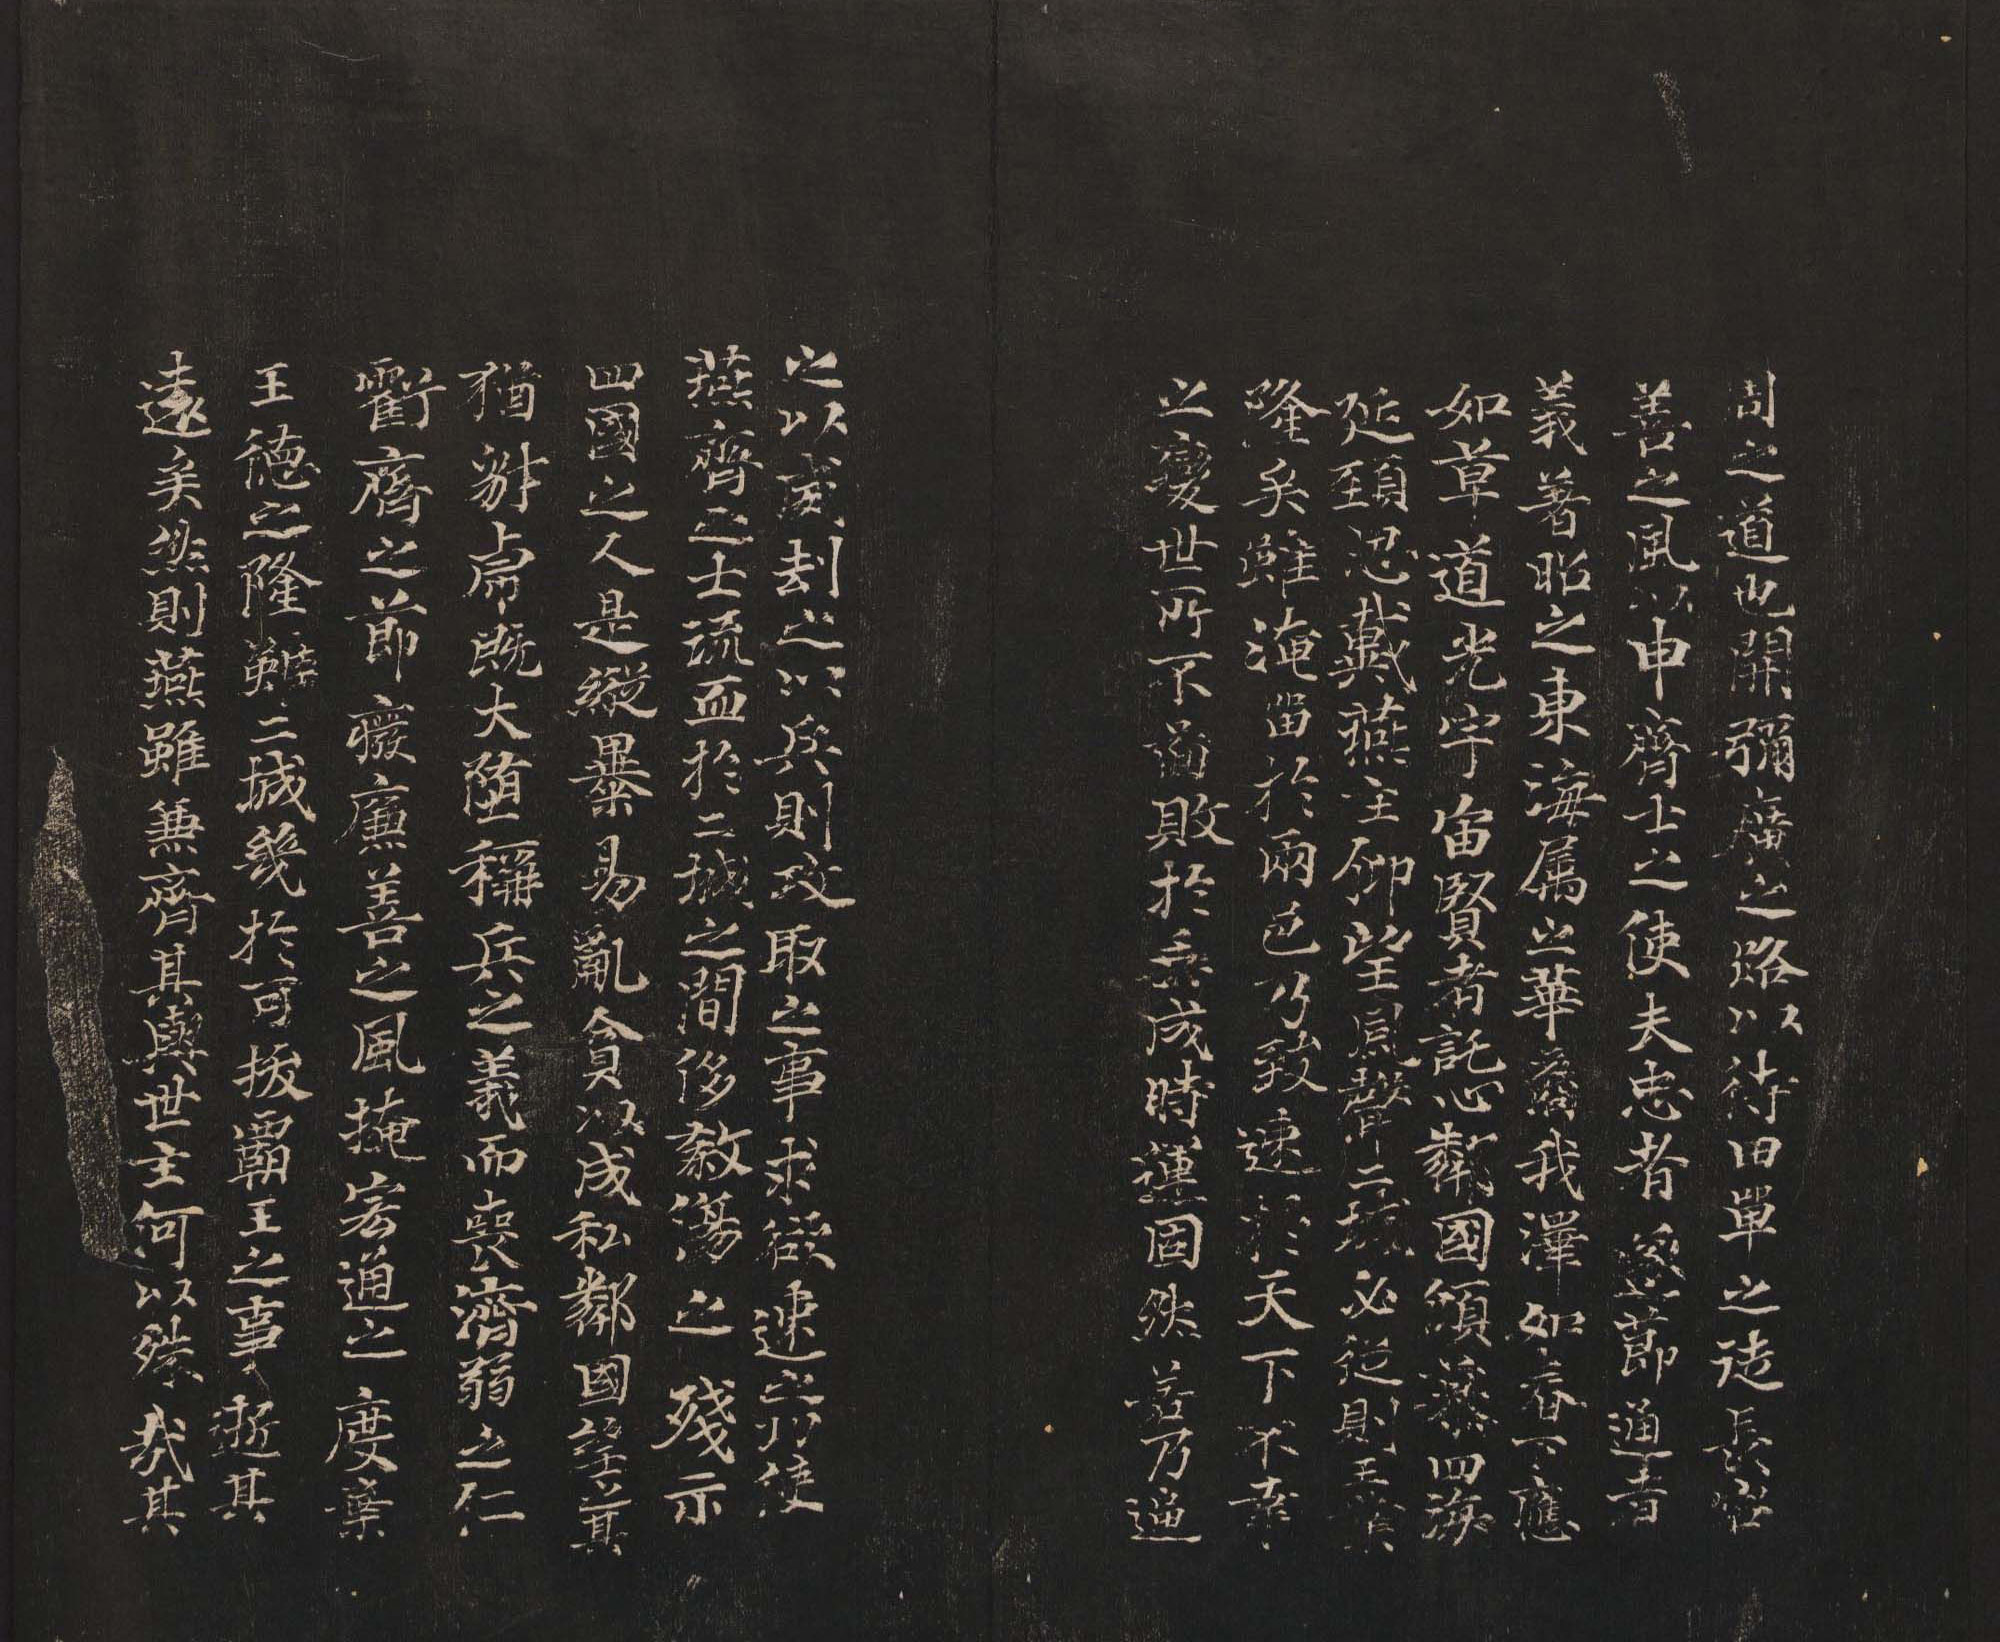 周之道也開彌廣之路以待田單之徒長容
善之風以申齊士之使夫忠者遂節通者
義著昭之東海属之華裔我澤如春下應
如草道光宇宙賢者託心鄰國傾慕四海
延頸思戴燕主仰望風聲二城必從則王業
隆矣雖淹留於兩邑乃致速於天下不幸
之變世所不圖敗於垂成時運固然若乃逼
之以威刦之以兵則攻取之事求欲速之功使
燕齊之士流血於二城之間侈殺傷之殘示
四國之人是縱暴易亂貪以成私鄰國望其
猶豺虎既大堕稱兵之義而喪濟弱之仁
虧齊之節癈廉善之風掩宏通之度棄
王德之隆雖二城幾於可拔霸王之事逝其
遠矣然則燕雖兼齊其與世主何以殊哉其